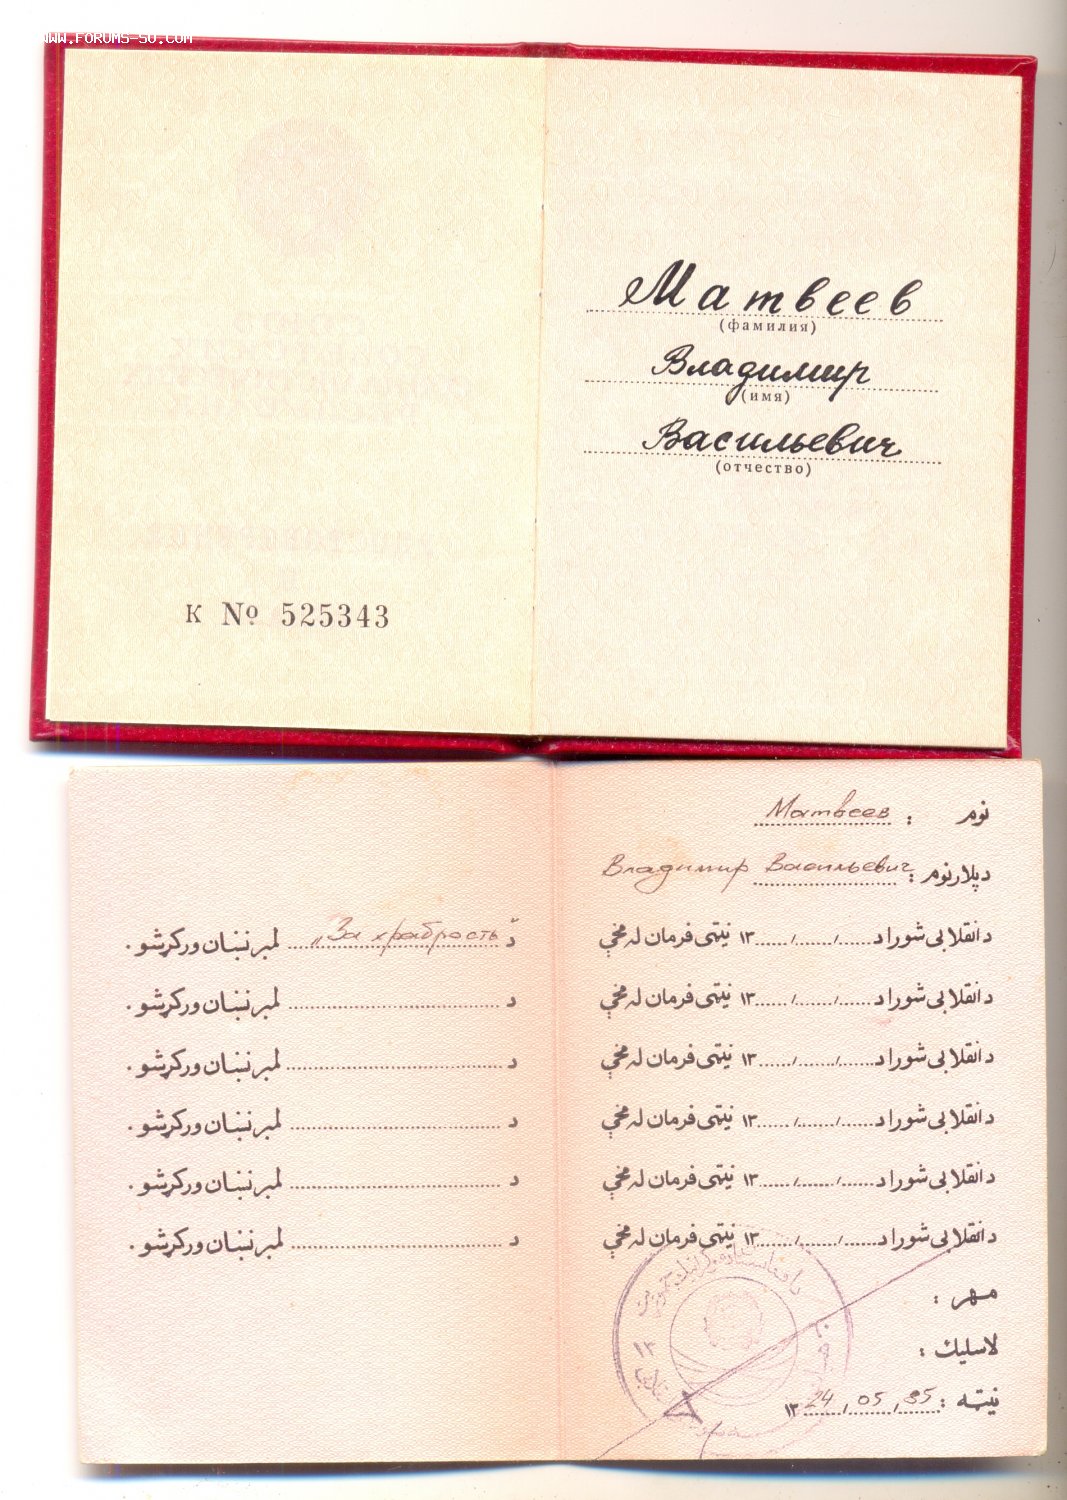 WWW.FORUMS-SU.COM
К № 525343
Матвеев
(фамилия)
Владимир
(имя)
Васильевич
(отчество)
نوم : Матвеев
د پلار نوم : Владимир Васильевич
د انقلابی شورا د ....../....../...... ۱۳ نېټې فرمان له مخې
د انقلابی شورا د ....../....../...... ۱۳ نېټې فرمان له مخې
د انقلابی شورا د ....../....../...... ۱۳ نېټې فرمان له مخې
د انقلابی شورا د ....../....../...... ۱۳ نېټې فرمان له مخې
د انقلابی شورا د ....../....../...... ۱۳ نېټې فرمان له مخې
د انقلابی شورا د ....../....../...... ۱۳ نېټې فرمان له مخې
مهر :
لاسلیک :
نېټه : 24, 05, 85 ۱۳
د „За храбрость لمبر نښان ورکړ شو .
د ............ لمبر نښان ورکړ شو .
د ............ لمبر نښان ورکړ شو .
د ............ لمبر نښان ورکړ شو .
د ............ لمبر نښان ورکړ شو .
د ............ لمبر نښان ورکړ شو .